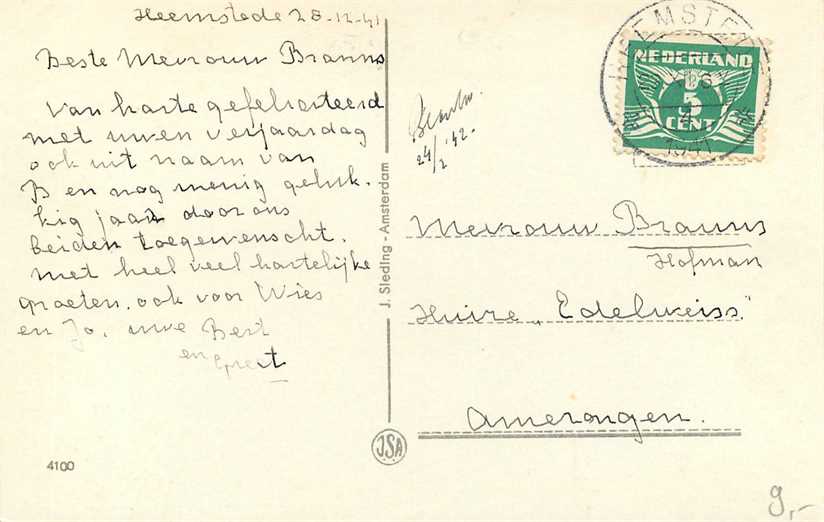 Heemstede 28-12-41
Beste Mevrouw Brauns
Van harte gefeliciteerd
met uwen verjaardag
ook uit naam van
B en nog menig geluk-
kig jaar door ons
beiden toegewenscht.
Met heel veel hartelijke
groeten, ook voor Wies
en Jo, uwe Bert
en Greet
4100
J. Sleding - Amsterdam
J.S.A.
24/2 '42.
HEEMSTEDE
1941
NEDERLAND
5
CENT
Mevrouw Brauns
Hofman
Huize „Edelweiss"
Amerongen.
9,-